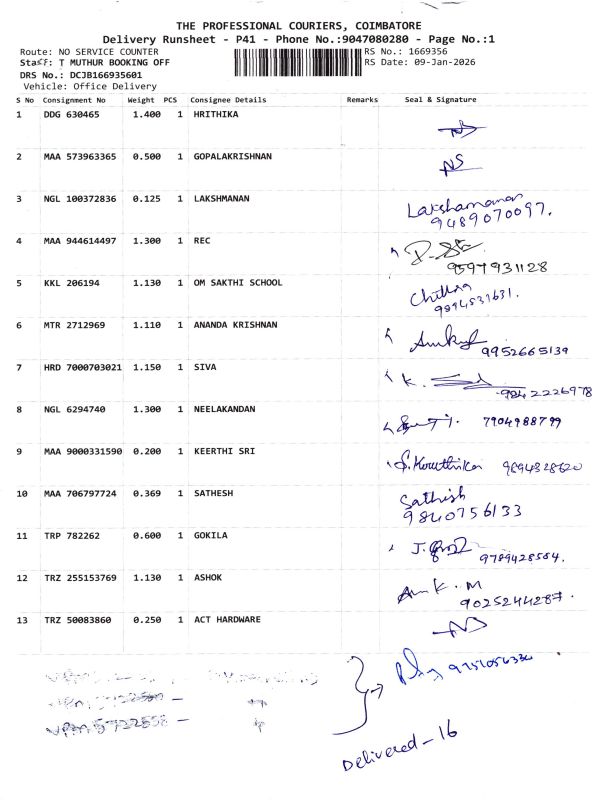 THE PROFESSIONAL COURIERS, COIMBATORE
Delivery Runsheet - P41 - Phone No.:9047080280 - Page No.:1
Route: NO SERVICE COUNTER RS No.: 1669356
Staff: T MUTHUR BOOKING OFF RS Date: 09-Jan-2026
DRS No.: DCJB166935601
Vehicle: Office Delivery
S No Consignment No Weight PCS Consignee Details Remarks Seal & Signature
1 DDG 630465 1.400 1 HRITHIKA
2 MAA 573963365 0.500 1 GOPALAKRISHNAN NS
3 NGL 100372836 0.125 1 LAKSHMANAN Lakshamanan
9489070097.
4 MAA 944614497 1.300 1 REC
9597931128
5 KKL 206194 1.130 1 OM SAKTHI SCHOOL Chithra
9894531631.
6 MTR 2712969 1.110 1 ANANDA KRISHNAN
9952665139
7 HRD 7000703021 1.150 1 SIVA K.
9842226978
8 NGL 6294740 1.300 1 NEELAKANDAN 7904988799
9 MAA 9000331590 0.200 1 KEERTHI SRI S. Kowthika 9894328620
10 MAA 706797724 0.369 1 SATHESH Sathish
9840756133
11 TRP 782262 0.600 1 GOKILA J.
9789428564.
12 TRZ 255153769 1.130 1 ASHOK M
9025244287.
13 TRZ 50083860 0.250 1 ACT HARDWARE
Delivered - 16